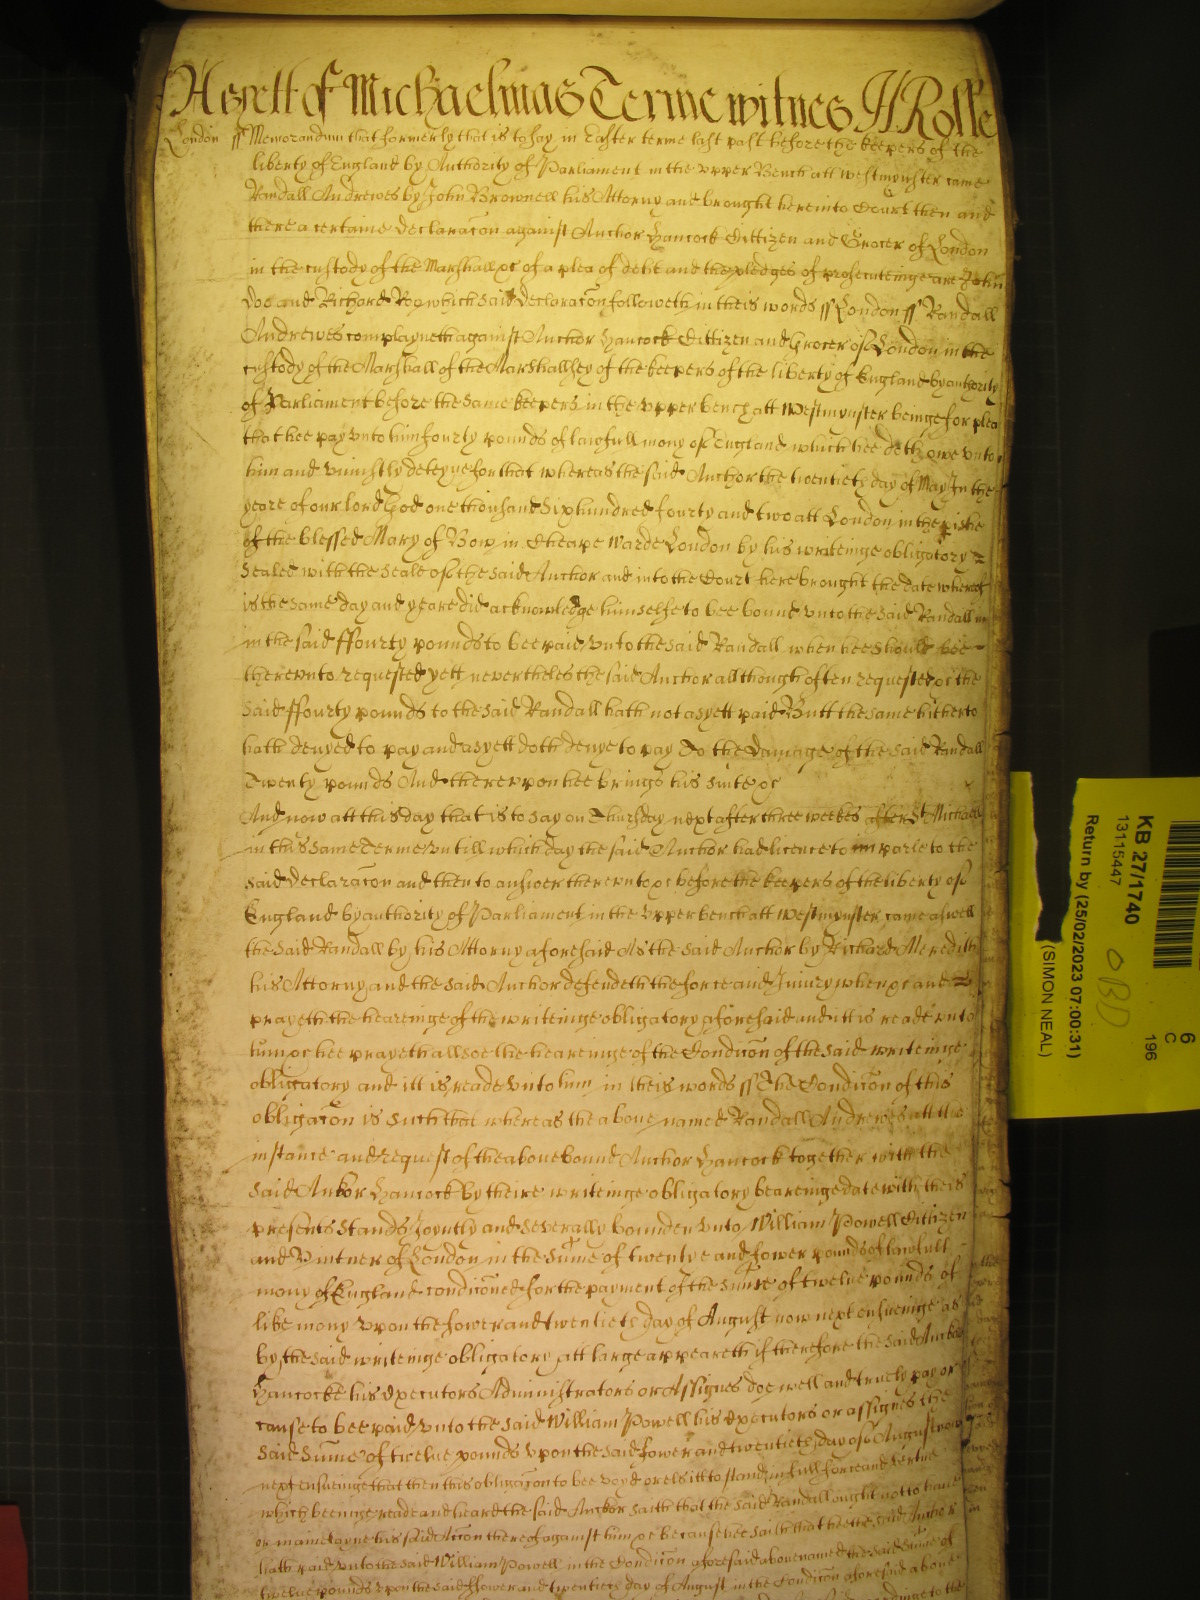 As yett of Michaelmas Terme witnes H Rolle
London ss Memorandum that formerly that is to say in Easter terme last past before the keepers of the
liberty of England by Authority of Parliament in the upper Bench att westmynster came
Randall Andrewes by John Brownell his Attorny and brought here into Court then and
there a certaine declaracon against Anchor Hancock Cittizen and Grocer of London
in the custody of the Marshall &c of a plea of debt and the pledges of prosecuteinge are John
Doe and Richard Roe which said declaracon followeth in theis words ss London ss Randall
Andrewes complayneth against Anchor Hancock Cittizen and Grocer of London in the
custody of the Marshall of the Marshallsey of the keepers of the liberty of England by authority
of Parliament before the same keepers in the upper bench att Westmynster beinge for plea
that hee pay unto him fourty pounds of lawfull mony of England which hee doth owe unto
him and uniustly deteyne for that whereas the said Anchor the twentieth day of May In the
yeare of our lord God one thousand Six hundred fourty and two att London in the pishe
of the blessed Mary of Bow in Cheape warde London by his writeinge obligatory
Sealed with the Seale of the said Anchor and into the Court here brought the date whereof
is the same day and yeare did acknowledge himselfe to bee bound unto the said Randall
in the said ffourty pounds to bee paid unto the said Randall when hee should bee
thereunto requested yett nevertheles the said Anchor allthough often requested &c the
said ffourty pounds to the said Randall hath not as yett paid Butt the same hitherto
hath denyed to pay and as yett doth denye to pay To the damage of the said Randall
Twenty pounds And thereupon hee brings his suite &c
And now att this day that is to say on Thursday next after three weekes after St Michaell
in this same Terme untill which day the said Anchor had licence to imparle to the
said declaracon and then to answer thereunto &c before the keepers of the liberty of
England by authority of Parliament in the upper bench att Westmynster came aswell
the said Randall by his Attorny aforesaid As the said Anchor by Richard Meredith
his Attorny and the said Anchor defendeth the force and Iniury when &c and
prayeth the heareinge of the writeinge obligatory aforesaid and itt is reade unto
him &c hee prayeth allsoe the heareinge of the Condicon of the said writeinge
obligatory and itt is reade unto him in theis words ss The Condicon of this
obligacon is such that whereas the above named Randall Andrewes att the
instance and request of the above bound Anchor Hancock together with the
said Ankor Hancock by theire writeinge obligatory beareinge date with theis
presents stands Joyntly and severally bounden unto William Powell Cittizen
and Vintner of London in the Sume of twentye and fower pounds of lawfull
mony of England condiconed for the payment of the sume of twelve pounds of
like mony upon the fower and twentieth day of August now next ensueinge as
by the said writeinge obligatory att large appeareth if therefore the said Ankor
Hancocke his Executors Administrators or Assignes doe well and truely pay or
cause to bee paid unto the said William Powell his Executors or assignes the
said Sume of twelve pounds upon the said fower and twentieth day of August now
next ensueinge that then this obligacon to bee voyd or els itt to stand in full force and vertue
which beeinge reade and heard the said Anchor saith that the said Randall ought not to have
or mainteyne his said Accon thereof against him &c because hee saith that hee the said Anchor
hath paid unto the said William Powell in the Condicon aforesaid above named the said Sume of
twelve pounds upon the said ffower and twentieth day of August in the Condicon aforesaid above
KB 27/1740
13115447
Return by (25/02/2023 07:00:31)
(SIMON NEAL)
OBD
6
C
196